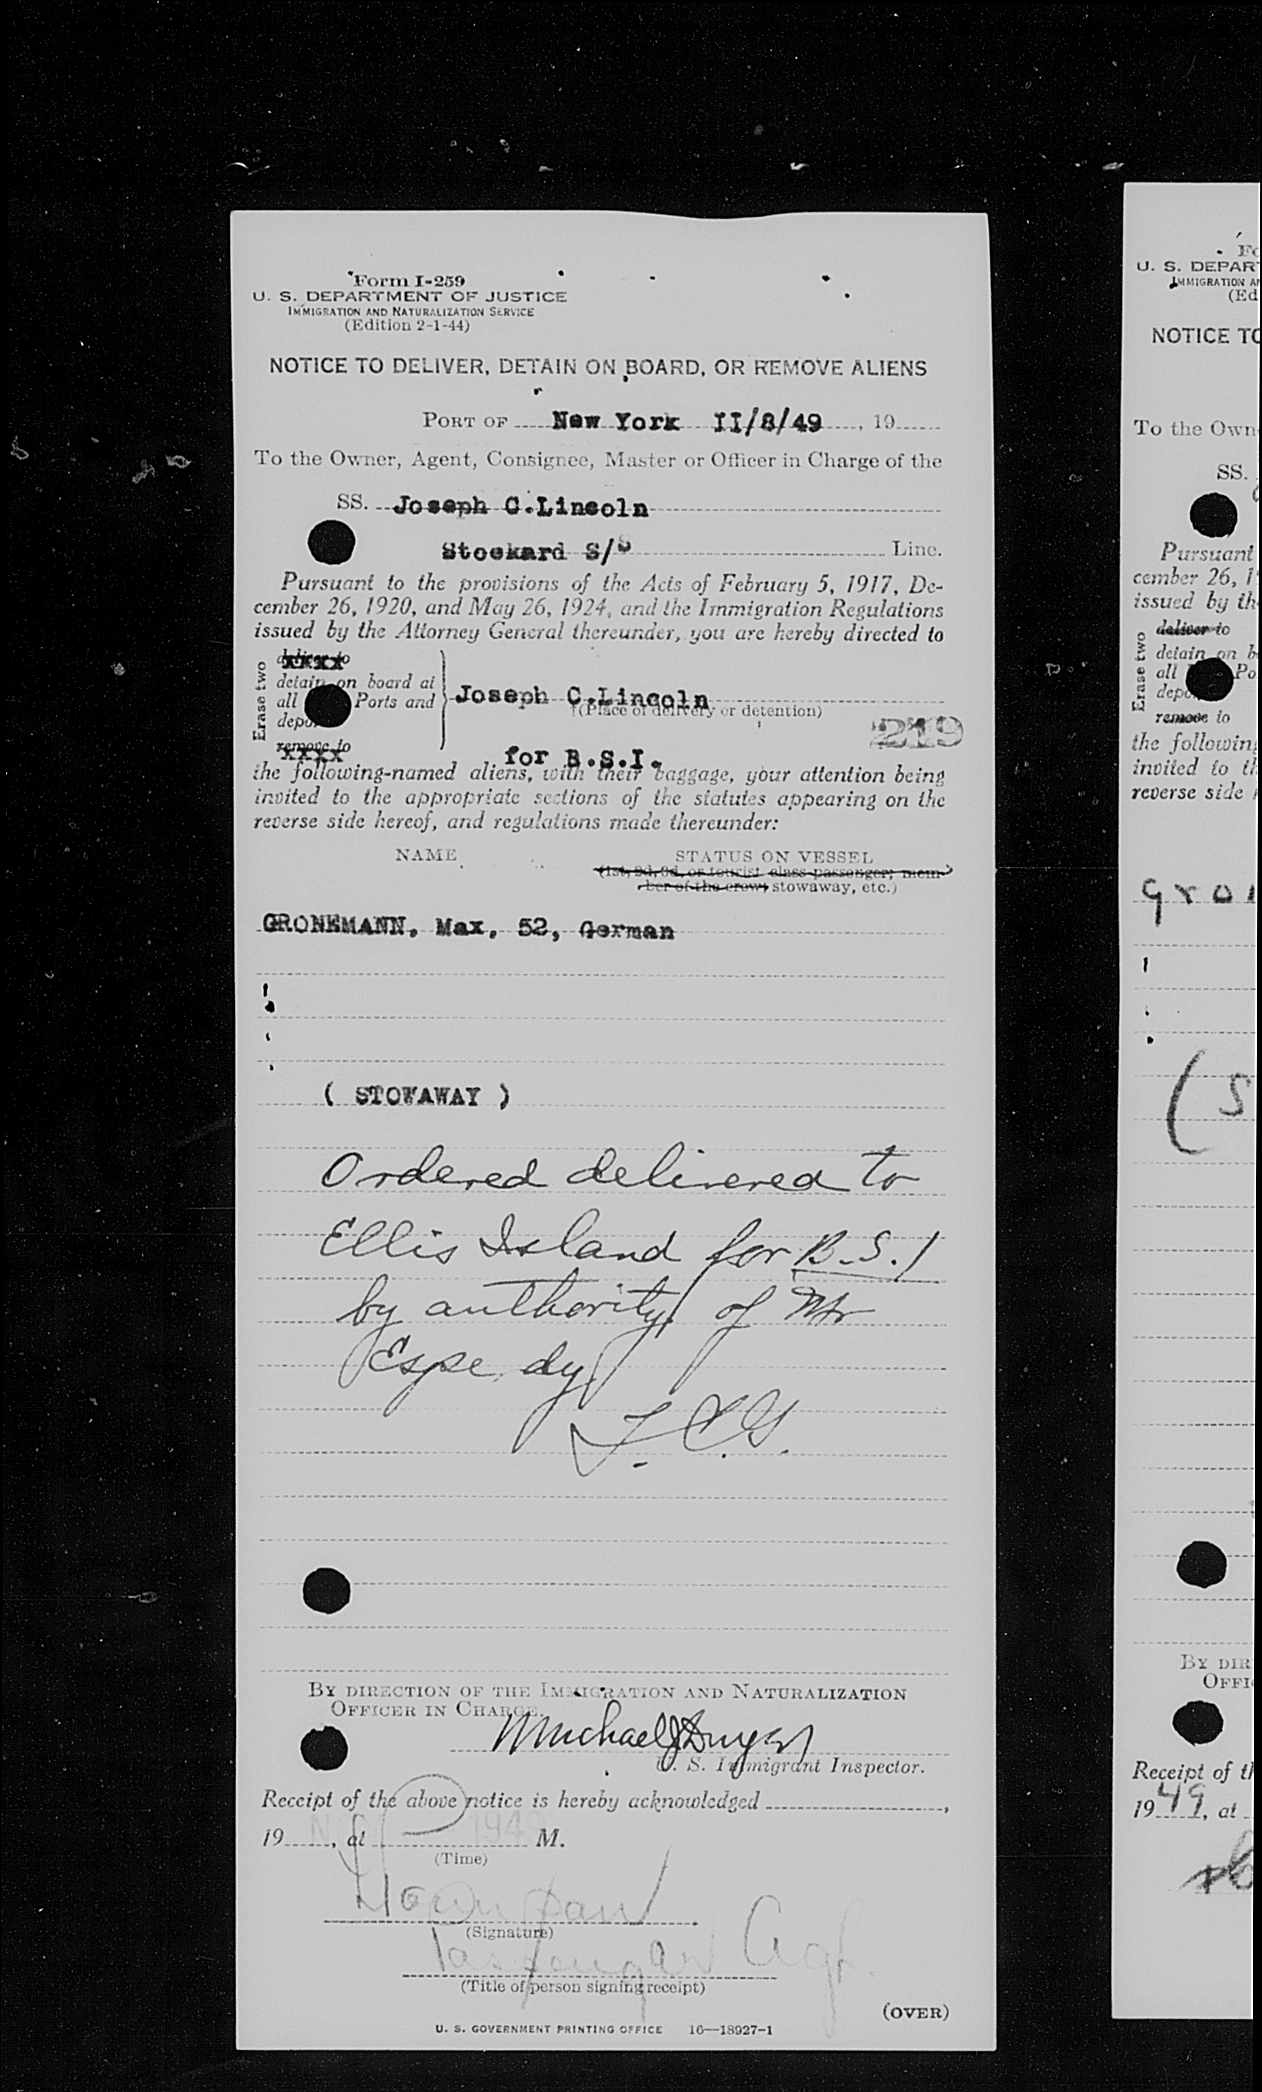 Form I-259
U. S. DEPARTMENT OF JUSTICE
IMMIGRATION AND NATURALIZATION SERVICE
(Edition 2-1-44)
NOTICE TO DELIVER, DETAIN ON BOARD, OR REMOVE ALIENS
PORT OF New York II/8/49, 19
To the Owner, Agent, Consignee, Master or Officer in Charge of the
SS. Joseph C.Lincoln
Stockard S/S Line.
Pursuant to the provisions of the Acts of February 5, 1917, De-
cember 26, 1920, and May 26, 1924, and the Immigration Regulations
issued by the Attorney General thereunder, you are hereby directed to
Erase two
deliver to
detain on board at
all Ports and
remove to
Joseph C.Lincoln
†(Place of delivery or detention)
219
for B.S.I.
the following-named aliens, with their baggage, your attention being
invited to the appropriate sections of the statutes appearing on the
reverse side hereof, and regulations made thereunder:
NAME STATUS ON VESSEL
(1st, 2d, 3d, or tourist class passenger; mem-
ber of the crew; stowaway, etc.)
GRONEMANN, Max, 52, German
( STOWAWAY )
Ordered delivered to
Ellis Island for B.S.I
by authority of Mr
Espe dy
BY DIRECTION OF THE IMMIGRATION AND NATURALIZATION
OFFICER IN CHARGE.
Michael J Dwyer
U. S. Immigrant Inspector.
Receipt of the above notice is hereby acknowledged ,
19 , at M.
(Time)
(Signature)
Passenger Agt.
(Title of person signing receipt)
(OVER)
U. S. GOVERNMENT PRINTING OFFICE 16—18927-1
U. S. DEPAR
IMMIGRATION A
(Ed
NOTICE TO
To the Own
SS.
Pursuant
cember 26, 1
issued by th
Erase two
deliver to
detain on b
all Po
remove to
the following
invited to th
reverse side
Gron
(S
BY DIR
OFFI
Receipt of th
1949, at